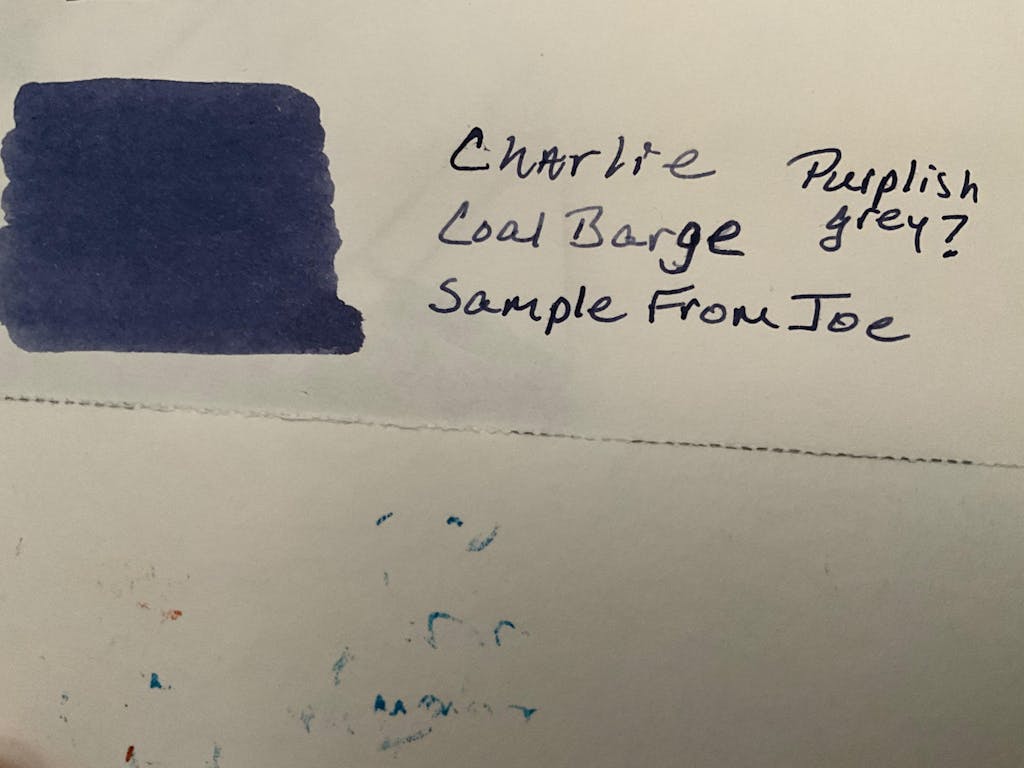 CHArlie
Coal Barge
Sample From Joe
Purplish
grey?